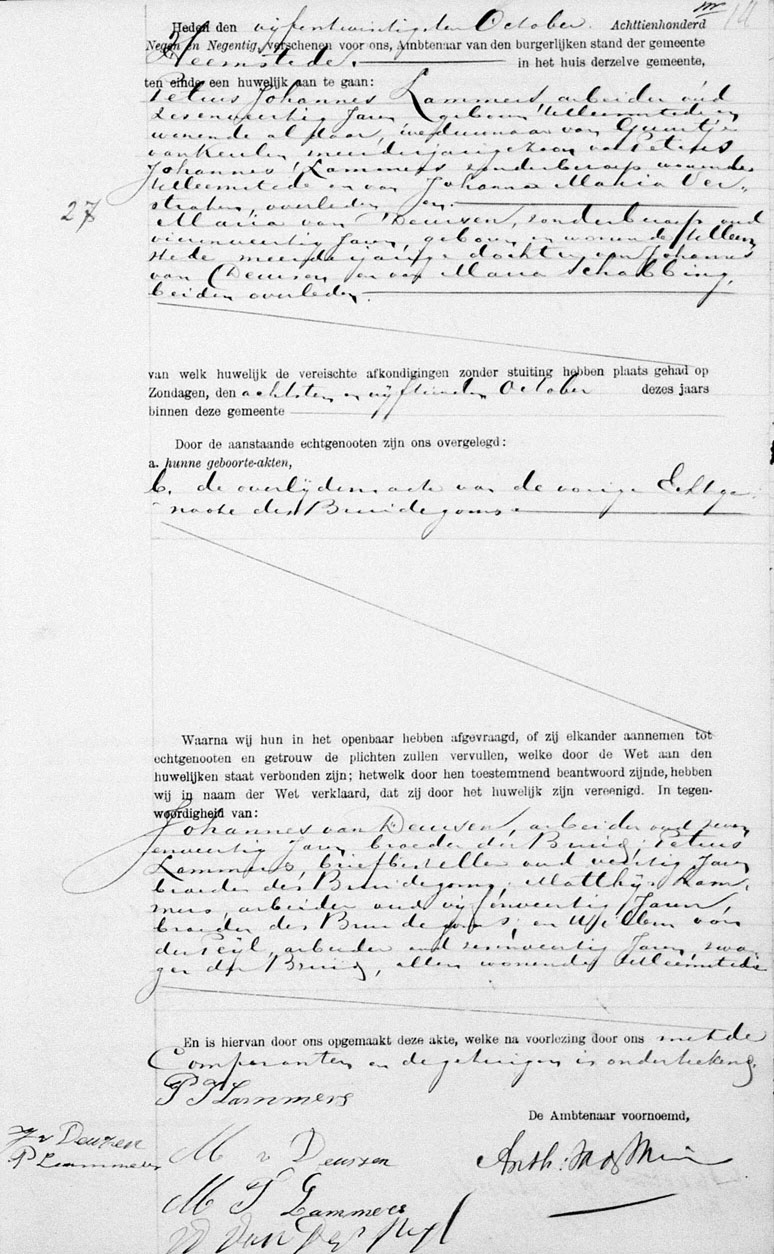 Heden den vijfentwintigsten October Achttienhonderd
Negen en Negentig, verschenen voor ons, Ambtenaar van den burgerlijken stand der gemeente
Heemstede, in het huis derzelve gemeente,
ten einde een huwelijk aan te gaan:
Petrus Johannes Lammers, arbeider oud
zesenveertig Jaren, geboren te Heemstede en
wonende aldaar, weduwnaar van Geertje
van Keulen, meerderjarige zoon van Petrus
Johannes Lammers zonder beroep wonende
te Heemstede en van Johanna Maria Ver-
straten, overleden en.
27
Maria van Deursen, zonder beroep oud
vierenveertig Jaren, geboren en wonende te Heem
stede meerderjarige dochter van Johannes
van Deursen en van Maria Schabbing,
beiden overleden.
van welk huwelijk de vereischte afkondigingen zonder stuiting hebben plaats gehad op
Zondagen, den achtsten en vijftienden October dezes jaars
binnen deze gemeente
Door de aanstaande echtgenooten zijn ons overgelegd:
a. hunne geboorte-akten,
b. de overlijdensacte van de vorige Echtge-
noote des Bruidegoms
Waarna wij hun in het openbaar hebben afgevraagd, of zij elkander aannemen tot
echtgenooten en getrouw de plichten zullen vervullen, welke door de Wet aan den
huwelijken staat verbonden zijn; hetwelk door hen toestemmend beantwoord zijnde, hebben
wij in naam der Wet verklaard, dat zij door het huwelijk zijn vereenigd. In tegen-
woordigheid van:
Johannes van Deursen, arbeider oud zeven
enveertig Jaren broeder der Bruid; Petrus
Lammers, briefbesteller oud veertig Jaren
broeder des Bruidegoms; Matthijs Lam-
mers, arbeider oud vijfenveertig Jaren,
broeder des Bruidegoms; en Willem van
der Peijl, arbeider oud zevenveertig Jaren, zwa-
ger der Bruid, allen wonende te Heemstede
En is hiervan door ons opgemaakt deze akte, welke na voorlezing door ons met de
Comparanten en de getuigen is onderteekend.
P J Lammers
De Ambtenaar voornoemd,
J v Deurzen
P Lammers
M v Deurzen
M J Lammers
W Van Der Peijl